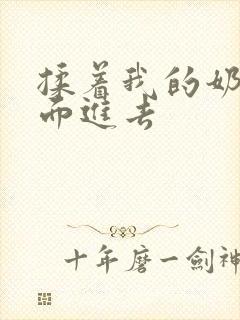 揉着我的奶
而進去
十年磨一劍神